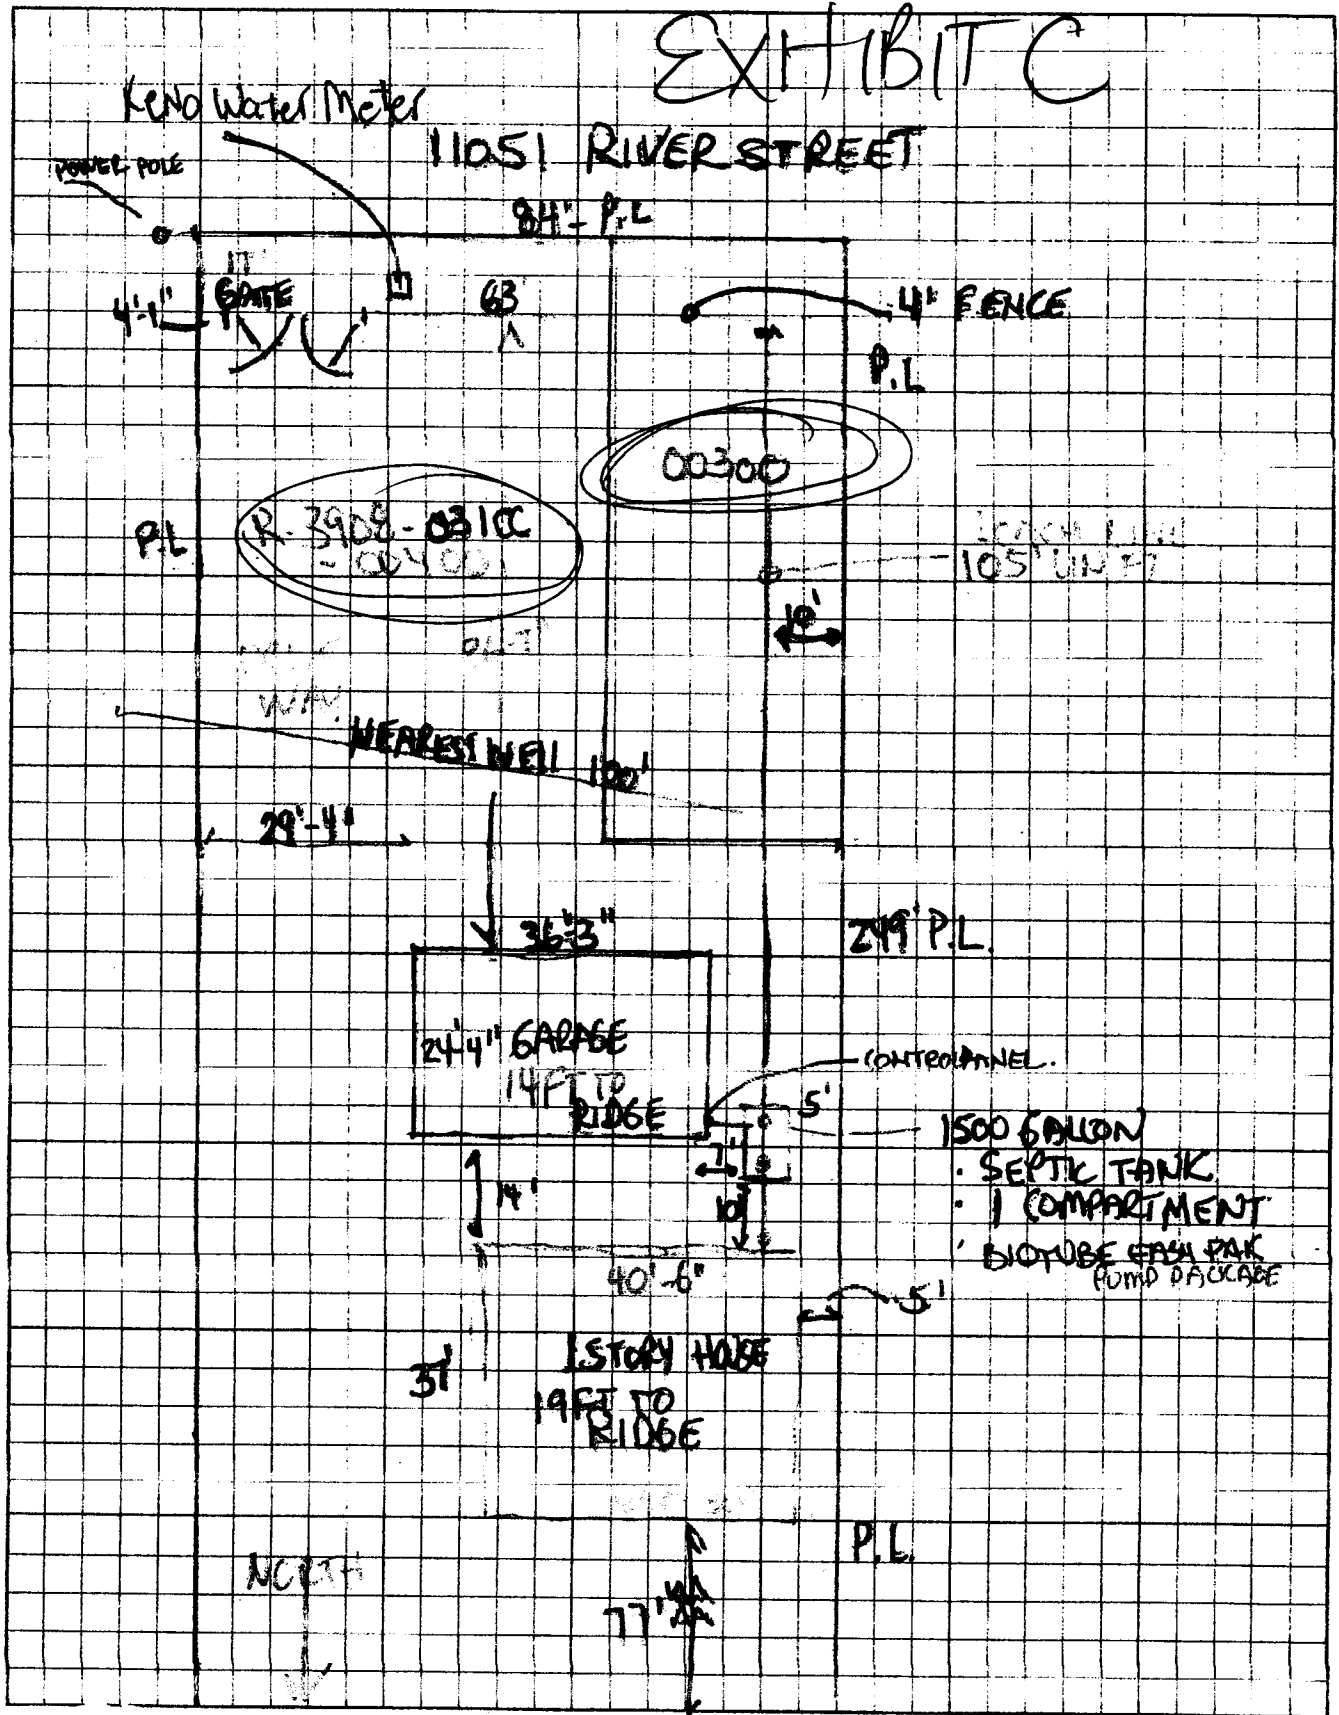 EXHIBIT C
Keno Water Meter
11051 RIVER STREET
POWER POLE
84' - P.L
17'
GATE
4'-1"
63'
4" FENCE
P.L
00300
R-3908-031CC
-00400
P.L
105'
10'
WAY
NEAREST WELL 100'
29'-4"
36'-3"
249' P.L.
24'4" GARAGE
14 FT TO
RIDGE
CONTROL PANEL.
5'
1500 GALLON
7'
· SEPTIC TANK
14'
10'
· 1 COMPARTMENT
· BIOTUBE EASY PAK
PUMP PACKAGE
40'-6"
5'
1 STORY HOUSE
37'
19 FT TO
RIDGE
P.L.
NORTH
77'